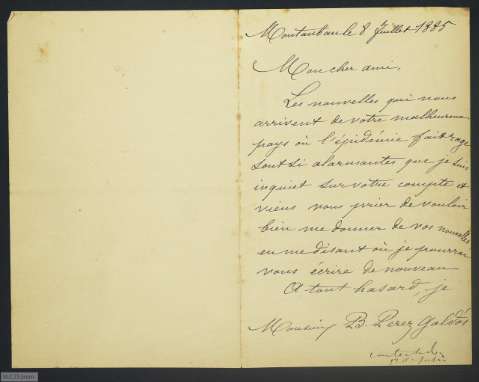 Montauban le 8 juillet 1885
Mon cher ami,
Les nouvelles qui nous
arrivent de votre malheureux
pays où l'épidémie fait rage
sont si alarmantes que je suis
inquiet sur votre compte et
viens vous prier de vouloir
bien me donner de vos nouvelles
en me disant où je pourrai
vous écrire de nouveau
A tout hasard, je
Monsieur B. Perez Galdós